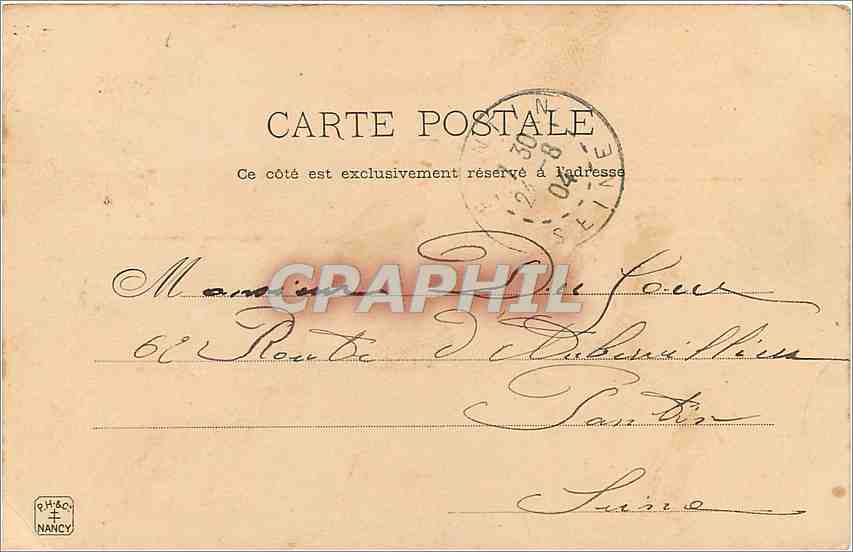 CARTE POSTALE
Ce côté est exclusivement réservé à l'adresse
PANTIN
30
24 -8
04
SEINE
CPRAPHIL
Monsieur Dufour
62 Route d'Aubervilliers
Pantin
Seine
P.H.&C.
NANCY